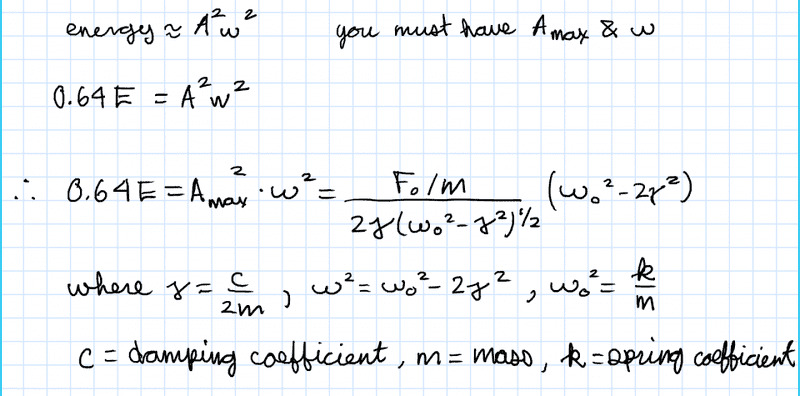 energy ≈ A²ω² you must have A max & ω
0.64E = A²ω²
∴ 0.64E = A max² · ω² = (F₀/m) / (2γ(ω₀² - γ²)^1/2) (ω₀² - 2γ²)
where γ = c/2m , ω² = ω₀² - 2γ² , ω₀² = k/m
c = damping coefficient , m = mass , k = spring coefficient